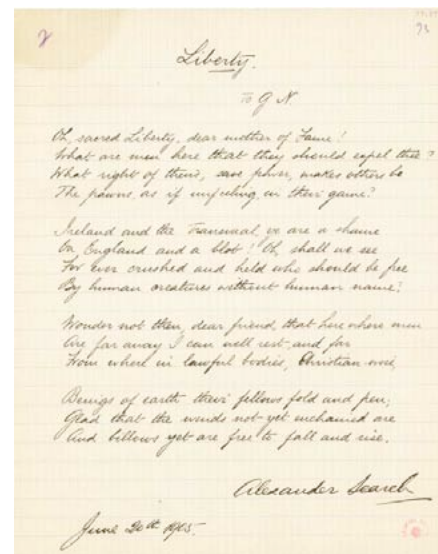 2
Liberty.
To G N.
Oh, sacred Liberty, dear mother of Fame!
What are men here that they should expel thee?
What right of theirs, save power, makes others be
The pawns, as if unfeeling, in their game?
Ireland and the Transvaal, ye are a shame
On England and a blot! Oh, shall we see
For ever crushed and held who should be free
By human creatures without human name?
Wonder not then, dear friend, that here where men
Are far away I can well rest, and far
From where in lawful bodies, Christian
Beings of earth their fellows fold and pen;
Glad that the winds not yet enchained are
And billows yet are free to fall and rise.
Alexander Search
June 20th 1905.